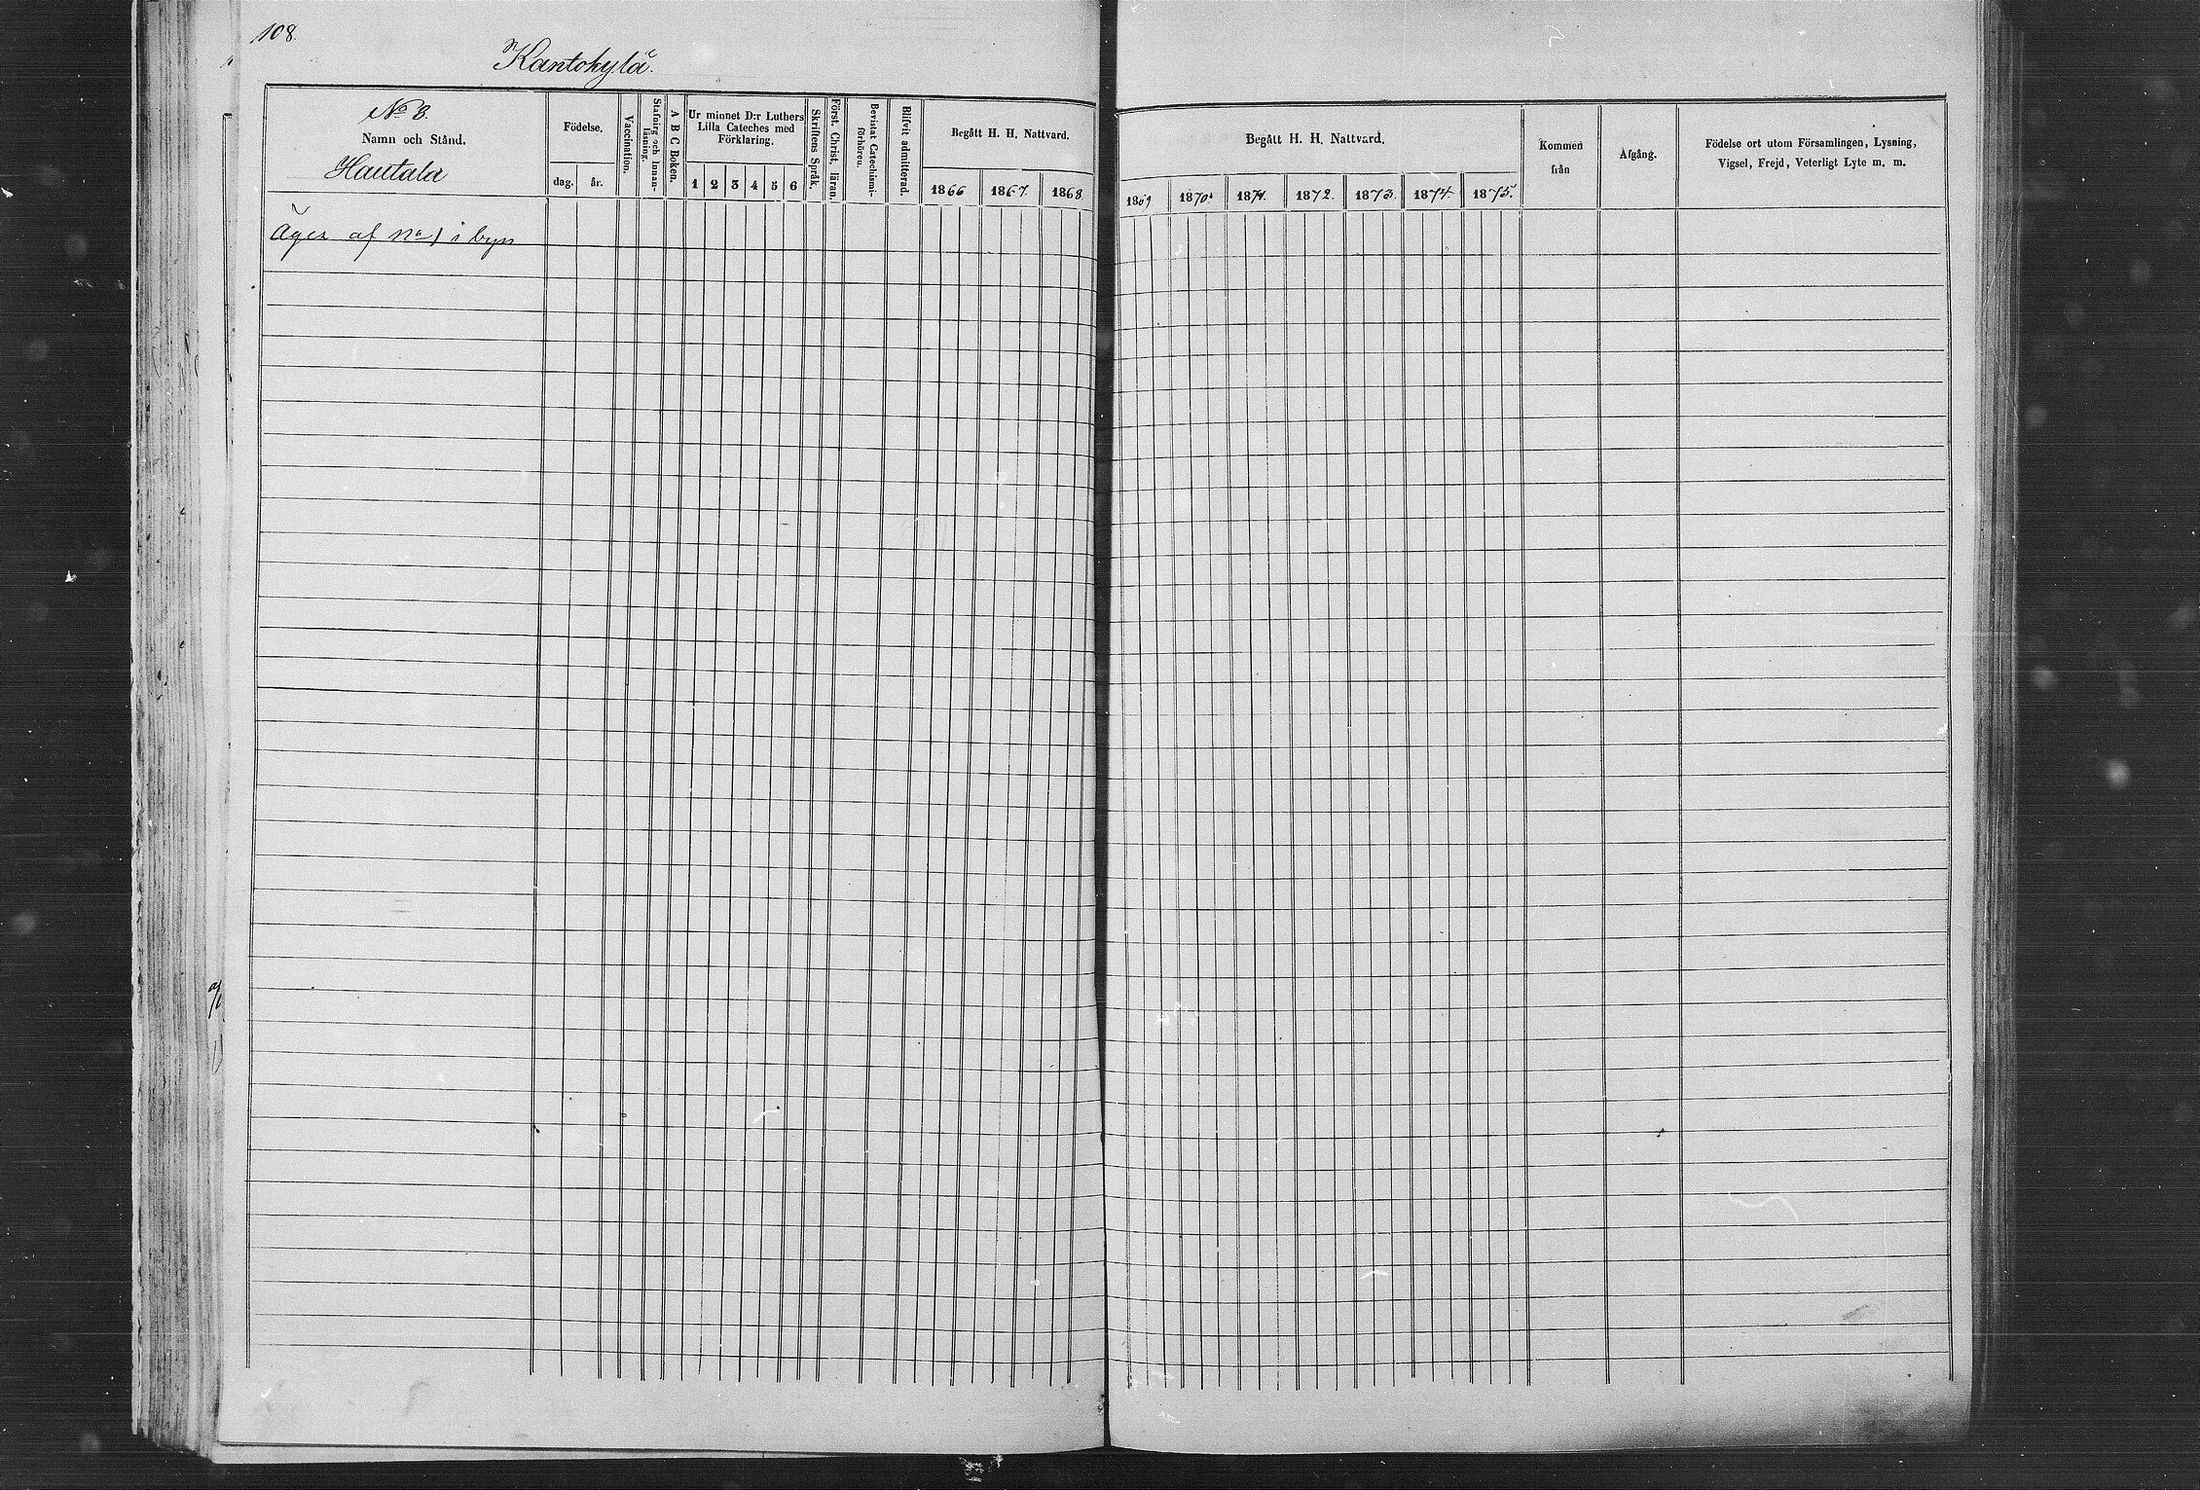 108.
Kantokylä.
No 8.
Namn och Stånd.
Hautala
Födelse.
dag. år.
Vaccination.
Stafning och Innan-
läsning.
A B C Boken.
Ur minnet D:r Luthers
Lilla Cateches med
Förklaring.
1 2 3 4 5 6
Skriftens Språk.
Först. Christ. läran.
Bevistat Catechismi-
förhören.
Blifvit admitterad.
Begått H. H. Nattvard.
1866 1867. 1868
Äges af No 1 i byn
Begått H. H. Nattvard.
1869 1870. 1871. 1872. 1873. 1874. 1875.
Kommen
från
Afgång.
Födelse ort utom Församlingen, Lysning,
Vigsel, Frejd, Veterligt Lyte m. m.